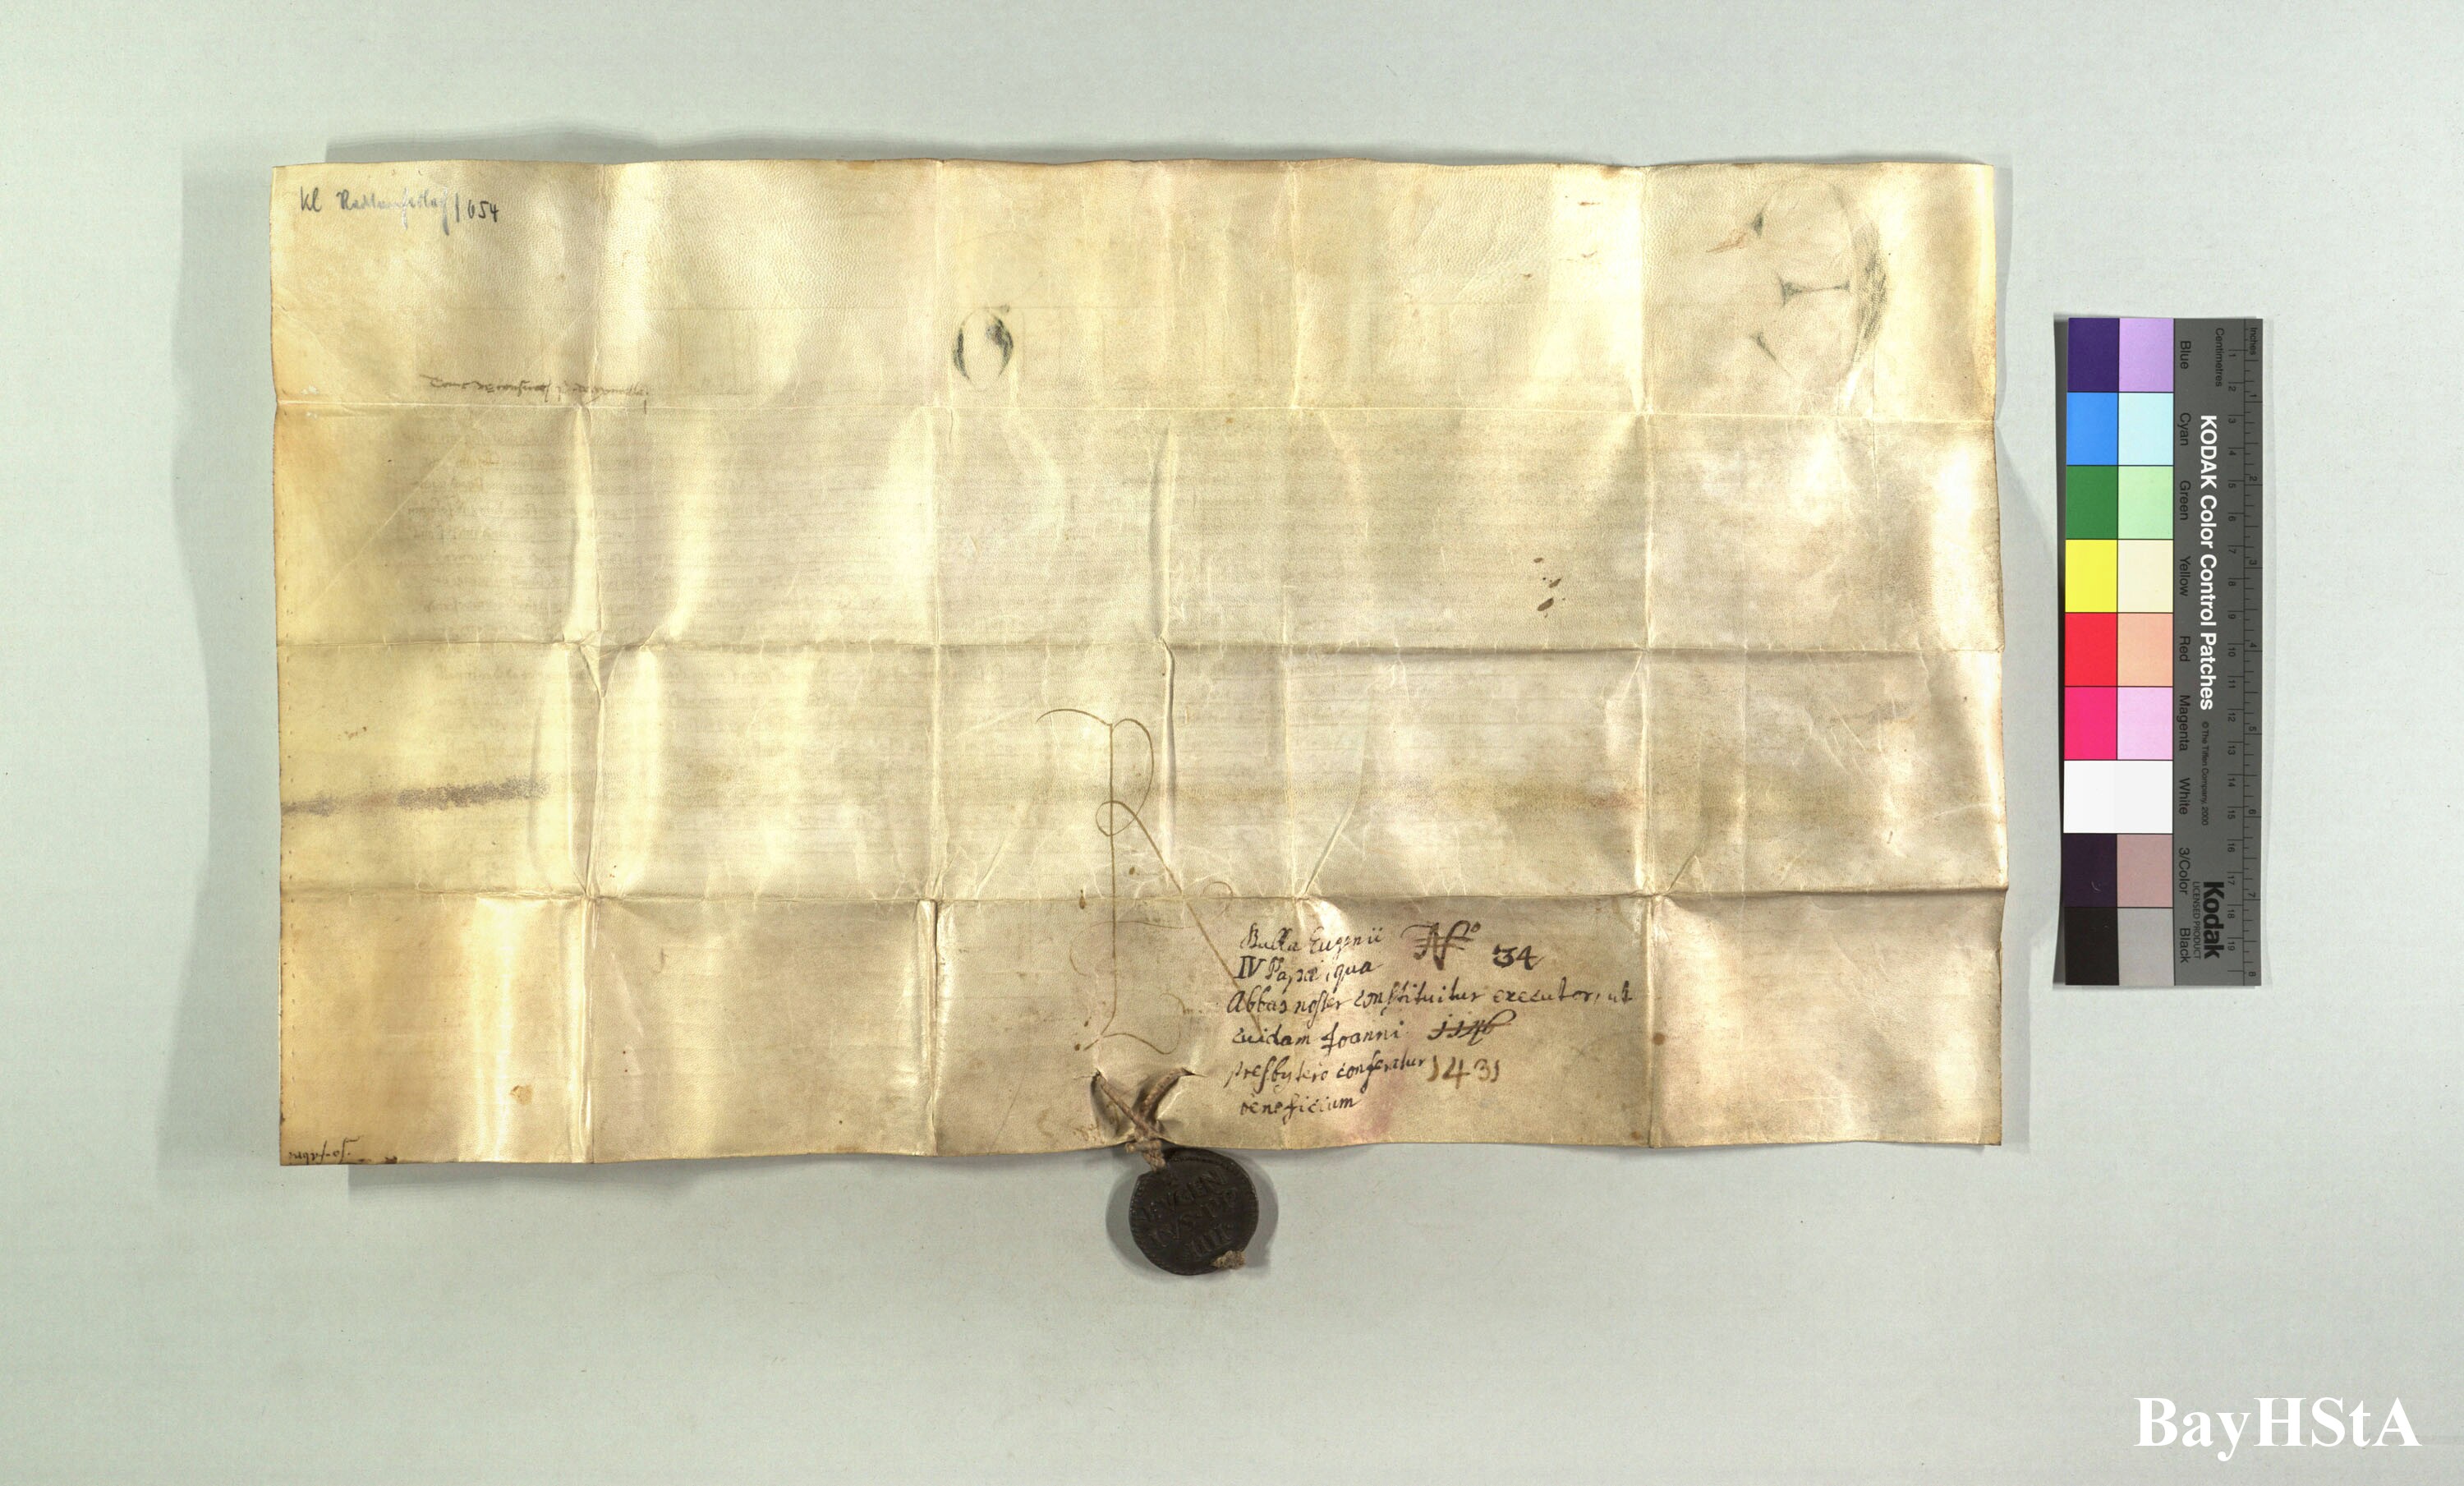 Kl Raitenhaslach 654
Bulla Eugenii Nº 34
IV Papæ, qua
Abbas noster constituitur executor, ut
cuidam Joanni 1146
presbytero conferatur 1431
beneficium
EVGEN
IVS PP
IIII
Blue Cyan Green Yellow Red Magenta White 3/Color Black
KODAK Color Control Patches © The Tiffen Company, 2000
Kodak
LICENSED PRODUCT
Inches 1 2 3 4 5 6 7 8
Centimetres 1 2 3 4 5 6 7 8 9 10 11 12 13 14 15 16 17 18 19
BayHStA